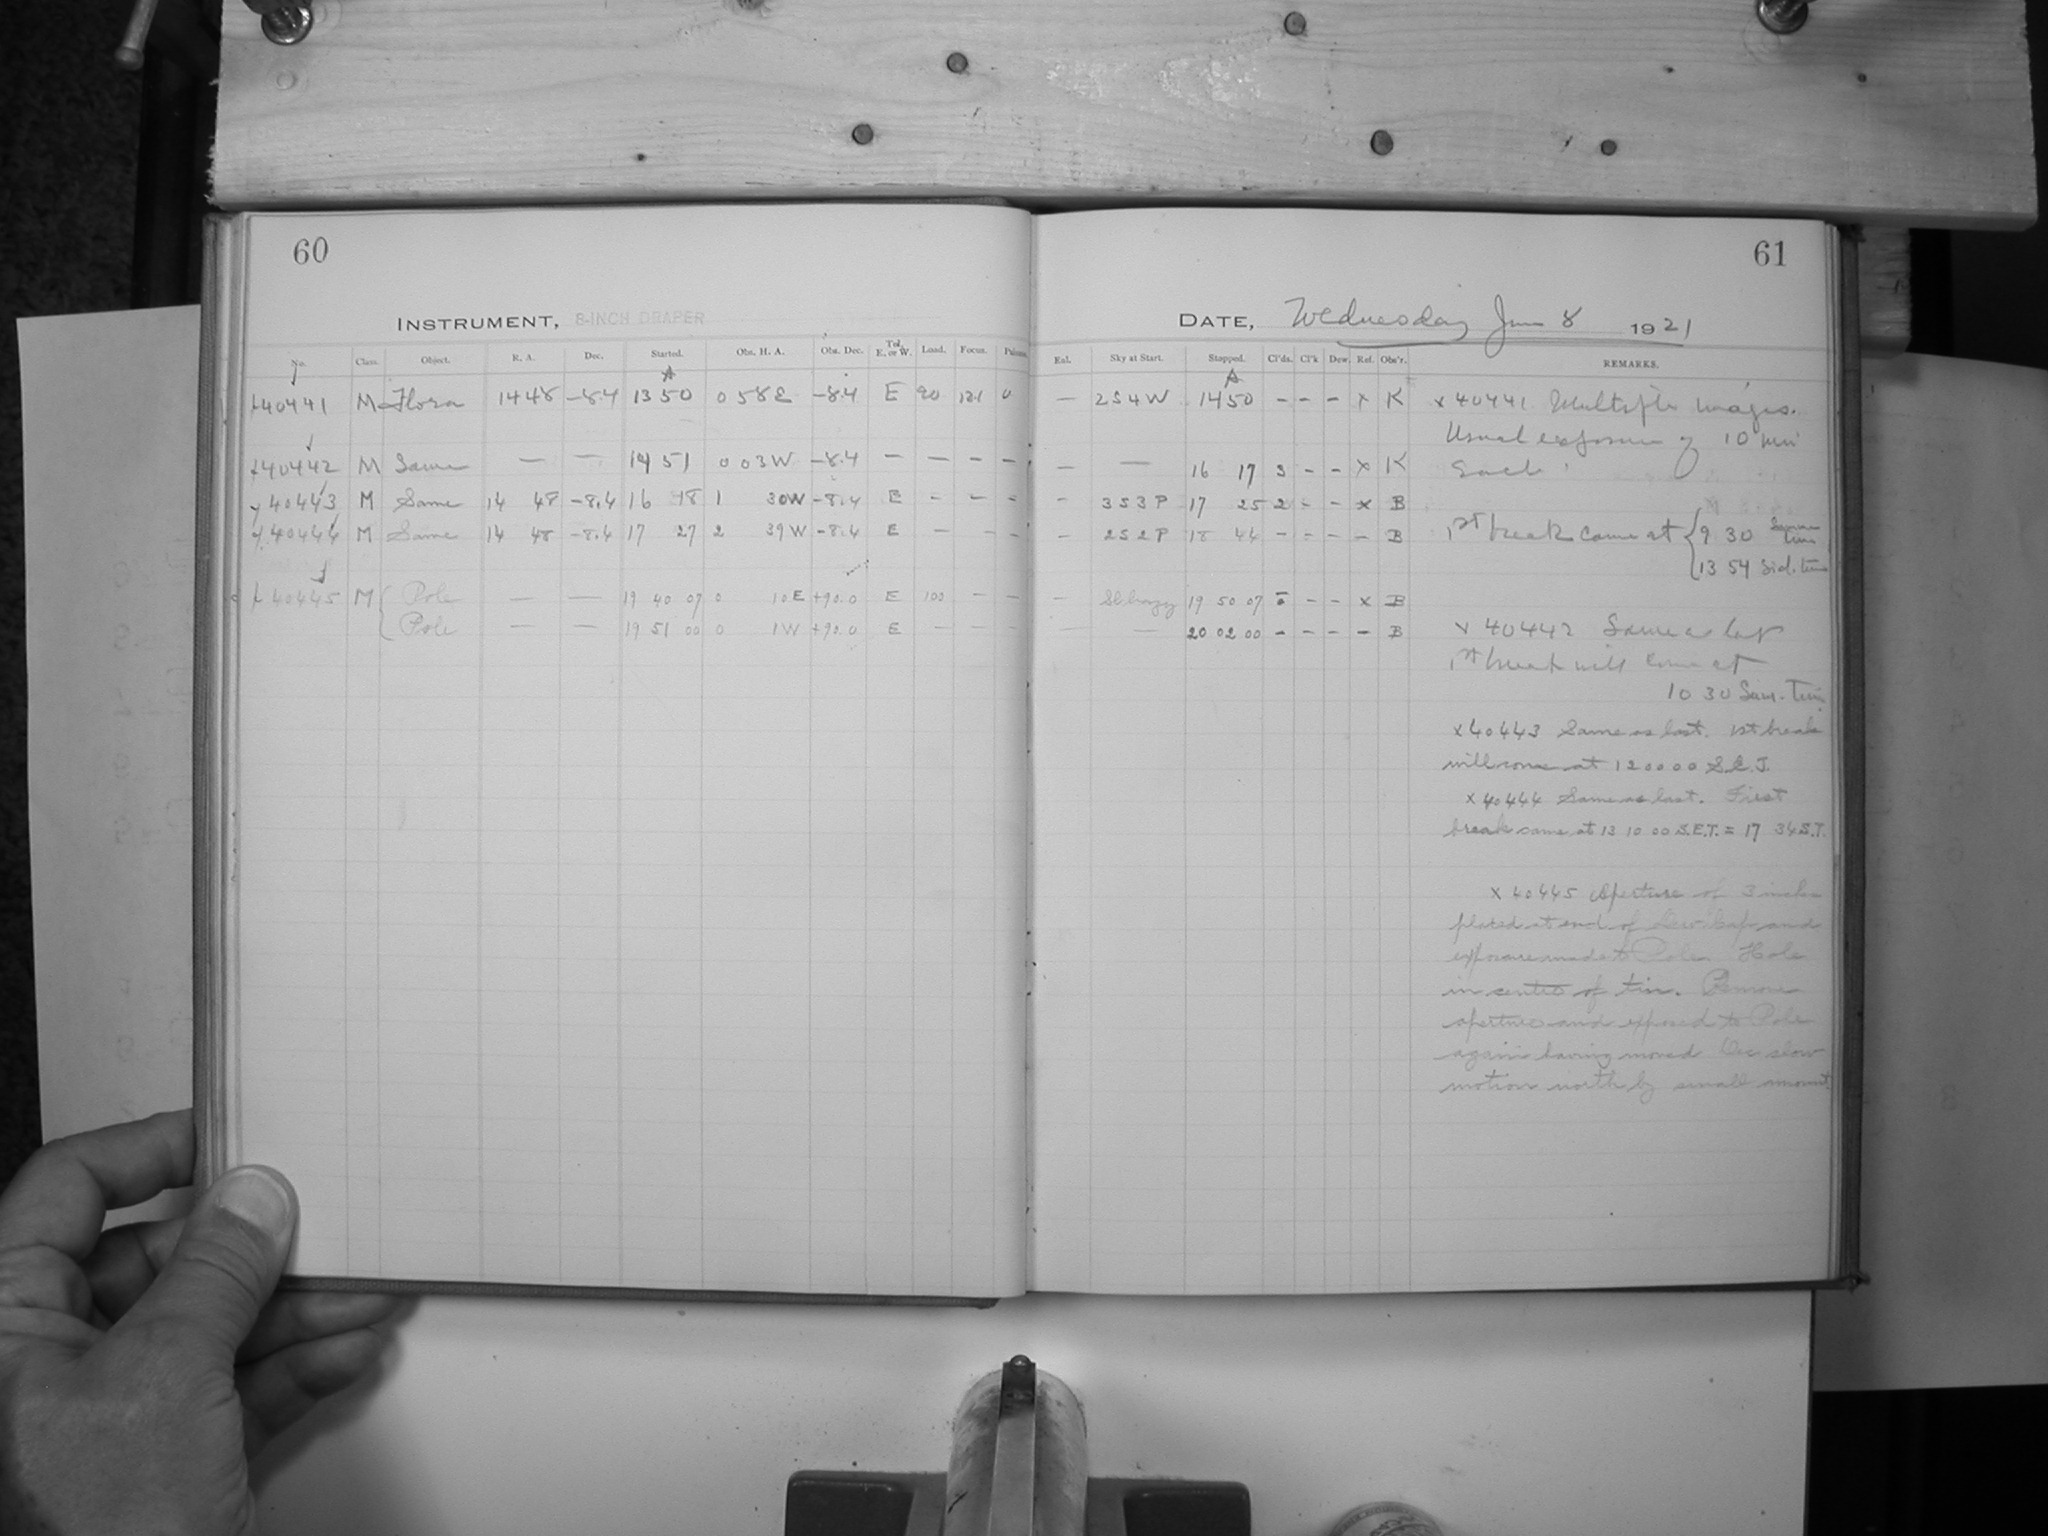 60
INSTRUMENT, 8-INCH DRAPER
No. Class. Object. R. A. Dec. Started. Obs. H. A. Obs. Dec. Tel. E. or W. Load. Focus.
40441 M Flora 14 48 -8.4 13 50 0 58 E -8.4 E 90 12.1 0
40442 M Same — — 14 51 0 03 W -8.4 — — — —
40443 M Same 14 48 -8.4 16 18 1 30 W -8.4 E - - -
40444 M Same 14 48 -8.4 17 27 2 39 W -8.4 E — - -
40445 M { Pole — — 19 40 07 0 10 E +90.0 E 100 - -
Pole — — 19 51 00 0 1 W +90.0 E — - -
61
DATE, Wednesday Jun 8 1921
Enl. Sky at Start. Stopped. Cl'ds. Cl'k Dew. Ref. Obs'r. REMARKS.
— 2S4W 14 50 - - - x K
— — 16 17 3 - - x K
- 3S3P 17 25 2 - - x B
- 2S2P 18 44 - - - - B
- Sl. hazy 19 50 07 - - x B
— 20 02 00 - - - - B
x 40441 Multiple Images.
Usual exposure of 10 min
each.
1st break came at { 9 30 Summer time
13 54 Sid. time
x 40442 Same as last
1st break will come at
10 30 Sum. Time
x 40443 Same as last. 1st break
will come at 12 00 00 S.E.T.
x 40444 Same as last. First
break came at 13 10 00 S.E.T. = 17 34 S.T.
x 40445 Aperture of 3 inches
placed at end of Dew Cap and
exposure made to Pole. Hole
in centre of tin. Remove
aperture and exposed to Pole
again having moved Dec slow
motion north by small amount.